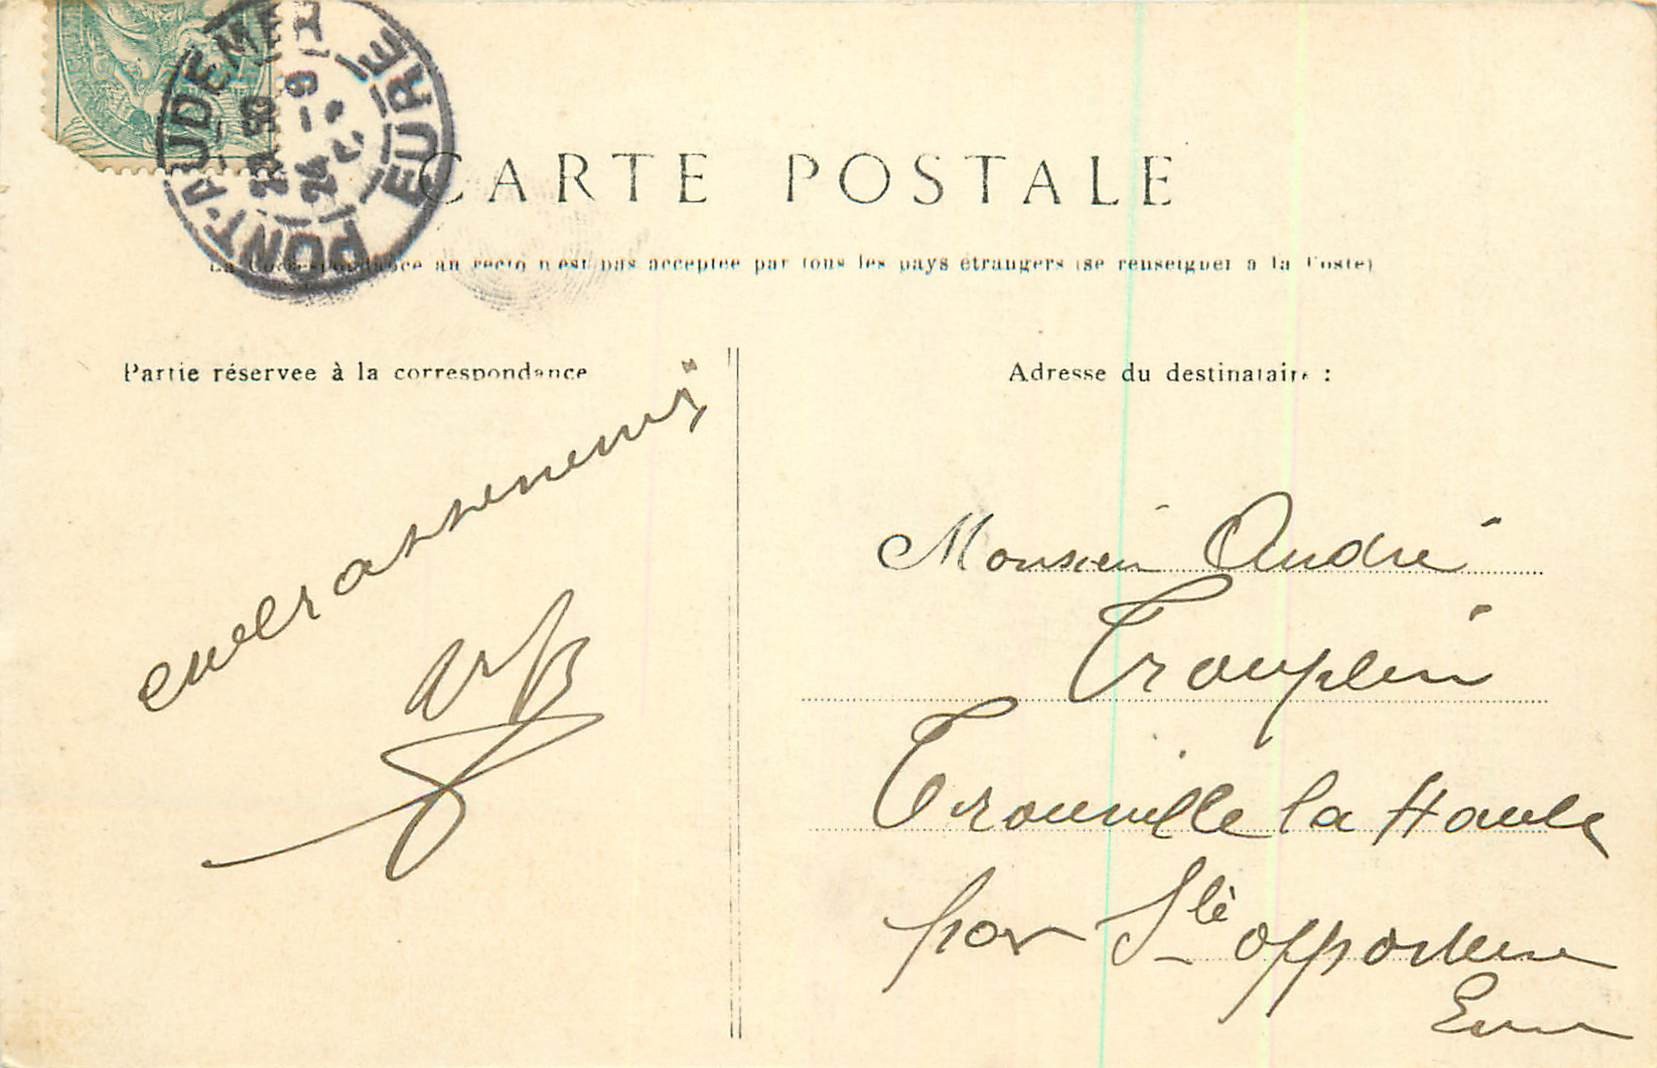 PONT-AUDEMER
EURE
24 -9
CARTE POSTALE
La Correspondance au recto n'est pas acceptée par tous les pays étrangers (se renseigner à la Poste)
Partie réservée à la correspondance
Adresse du destinataire :
embrassements
Monsieur André
Trouplin
Trouville la Haule
par Ste opportune
Eure